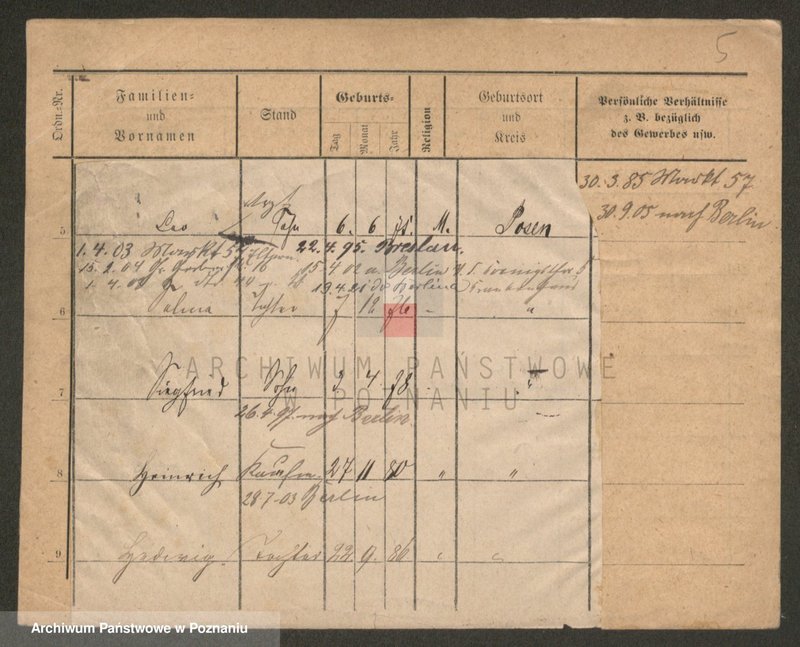 5
Ordn.-Nr.
Familien-
und
Vornamen
Stand
Geburts-
Tag
Monat
Jahr
Religion
Geburtsort
und
Kreis
Persönliche Verhältnisse
z. B. bezüglich
des Gewerbes usw.
30.3.85 Markt 57
30.9.05 nach Berlin
Arzt
5 Leo Sohn 6. 6 M. Posen
1.4.03 Markt 57 22.4.95. Breslau.
15.2.04 16 15.4.02 Berlin
1.4. 19.4. Berlin
6 Selma Tochter 7 12 76 "
ARCHIWUM PAŃSTWOWE
W POZNANIU
7 Siegfried Sohn 3 4 78 "
26.4.97. nach Berlin.
8 Heinrich Kaufm. 27 11 80 " "
28.7.03 Berlin
9 Hedwig. Tochter 22. 9. 86 " "
Archiwum Państwowe w Poznaniu